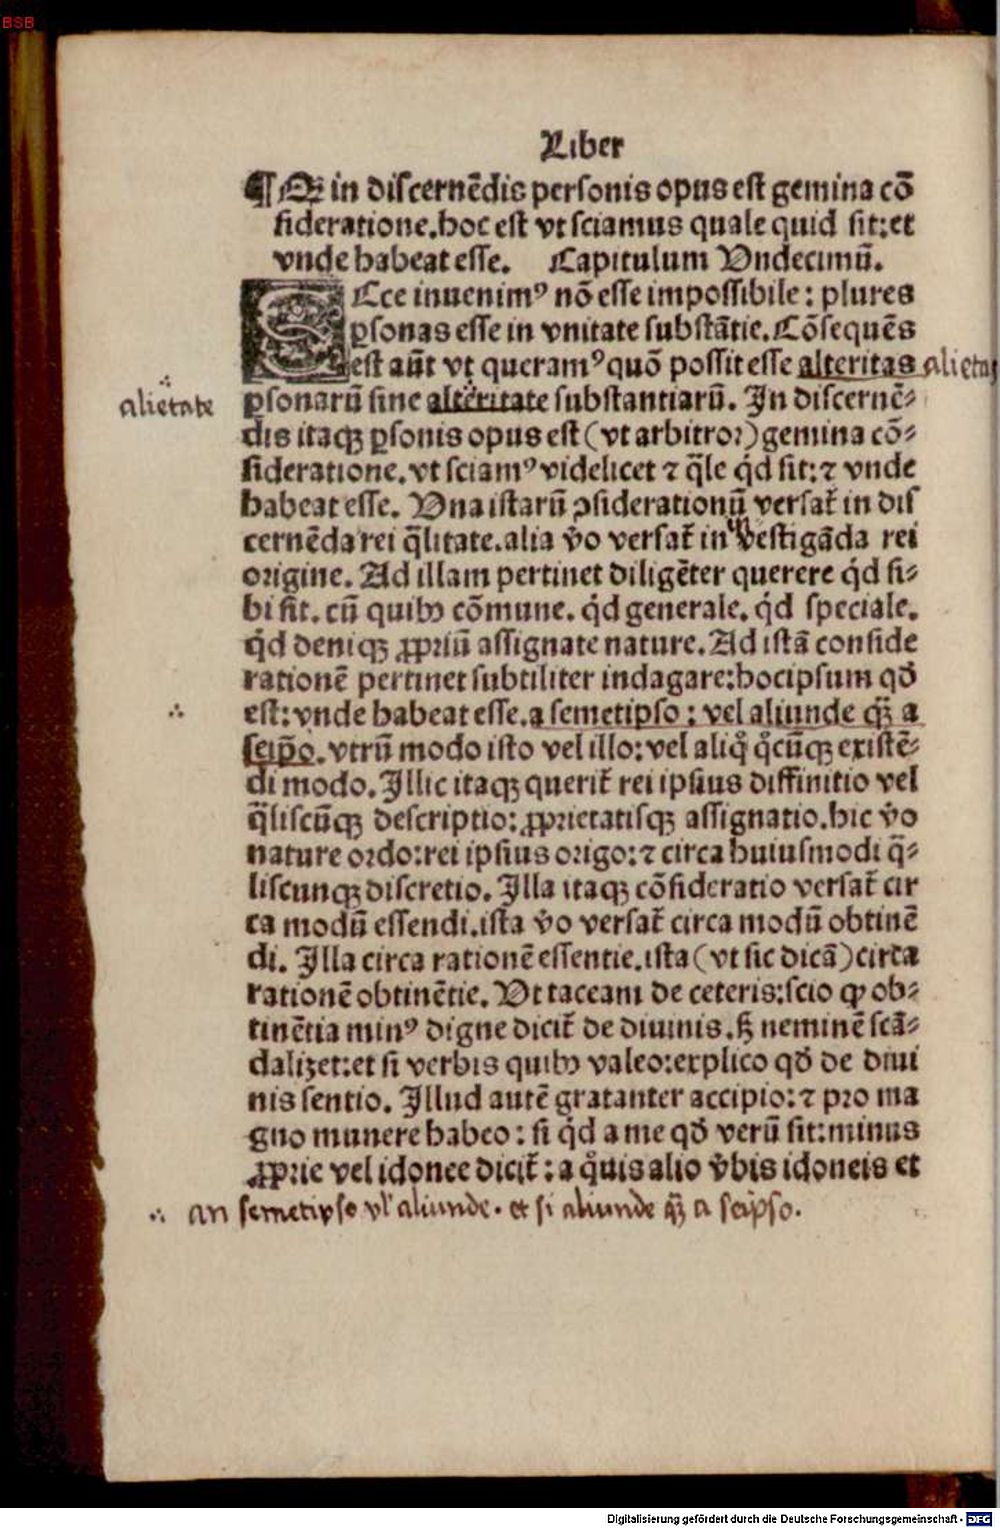 BSB
Liber
¶ Qꝫ in discernẽdis personis opus est gemina cõ
sideratione.hoc est vt sciamus quale quid sit:et
vnde habeat esse. Capitulum Vndecimũ.
ECce inuenimꝰ nõ esse impossibile: plures
ꝑsonas esse in vnitate substãtie.Cõsequẽs
est aũt vt queramꝰ quõ possit esse alteritas alietas
alietate ꝑsonarũ sine alteritate substantiarũ. In discernẽ⸗
dis itaqꝫ ꝑsonis opus est (vt arbitror) gemina cõ⸗
sideratione.vt sciamꝰ videlicet ⁊ q̃le qͥd sit:⁊ vnde
habeat esse. Vna istarũ ꝯsiderationũ versat᷑ in dis
cernẽda rei q̃litate.alia ṽo versat᷑ in vestigãda rei
origine. Ad illam pertinet diligẽter querere qͥd si⸗
bi sit. cũ quibꝰ cõmune. qͥd generale. qͥd speciale.
qͥd deniqꝫ ꝓpriũ assignate nature. Ad istã conside
rationẽ pertinet subtiliter indagare:hocipsum qđ
est:vnde habeat esse.a semetipso : vel aliunde qꝫ̃ a
seip̃o. vtrũ modo isto vel illo:vel aliqͦ qͦcũqꝫ existẽ⸗
di modo. Illic itaqꝫ querit᷑ rei ipsius diffinitio vel
q̃liscũqꝫ descriptio:ꝓprietatisqꝫ assignatio.hic ṽo
nature ordo:rei ipsius origo:⁊ circa huiusmodi q̃⸗
liscunqꝫ discretio. Illa itaqꝫ cõsideratio versat᷑ cir
ca modũ essendi.ista ṽo versat᷑ circa modũ obtinẽ
di. Illa circa rationẽ essentie.ista (vt sic dicã) circa
rationẽ obtinẽtie. Vt taceam de ceteris:scio ꝙ ob⸗
tinẽtia minꝰ digne dicit᷑ de diuinis.sꝫ neminẽ scã⸗
dalizet:et si verbis quibꝰ valeo:explico qđ de diui
nis sentio. Illud autẽ gratanter accipio:⁊ pro ma
gno munere habeo : si qͥd a me qđ verũ sit:minus
ꝓprie vel idonee dicit᷑ : a qͦuis alio ṽbis idoneis et
∴ an semetipso vl' aliunde. et si aliunde qꝫ̃ a seip̃so.
Digitalisierung gefördert durch die Deutsche Forschungsgemeinschaft - DFG